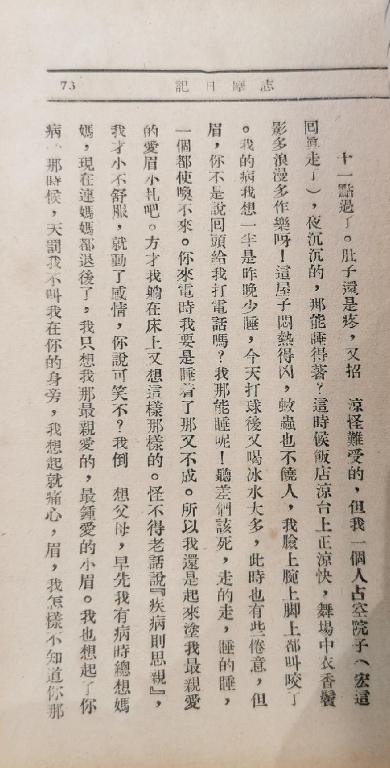 志摩日記
73
十一點過了。肚子還是疼,又招 涼怪難受的,但我一個人占空院子(宏這
回眞走了),夜沉沉的,那能睡得著?這時候飯店涼台上正涼快,舞場中衣香鬢
影多浪漫多作樂呀!這屋子悶熱得凶,蚊蟲也不饒人,我臉上腕上脚上都叫咬了
。我的病我想一半是昨晚少睡,今天打球後又喝冰水大多,此時也有些倦意,但
眉,你不是說回頭給我打電話嗎?我那能睡呢!聽差們該死,走的走,睡的睡,
一個都使喚不來。你來電時我要是睡着了那又不成。所以我還是起來塗我最親愛
的愛眉小札吧。方才我躺在床上又想這樣那樣的。怪不得老話說『疾病則思親』,
我才小不舒服,就動了感情,你說可笑不?我倒 想父母,早先我有病時總想媽
媽,現在連媽媽都退後了,我只想我那最親愛的,最鍾愛的小眉。我也想起了你
病 那時候,天罰我不叫我在你的身旁,我想起就痛心,眉,我怎樣不知道你那